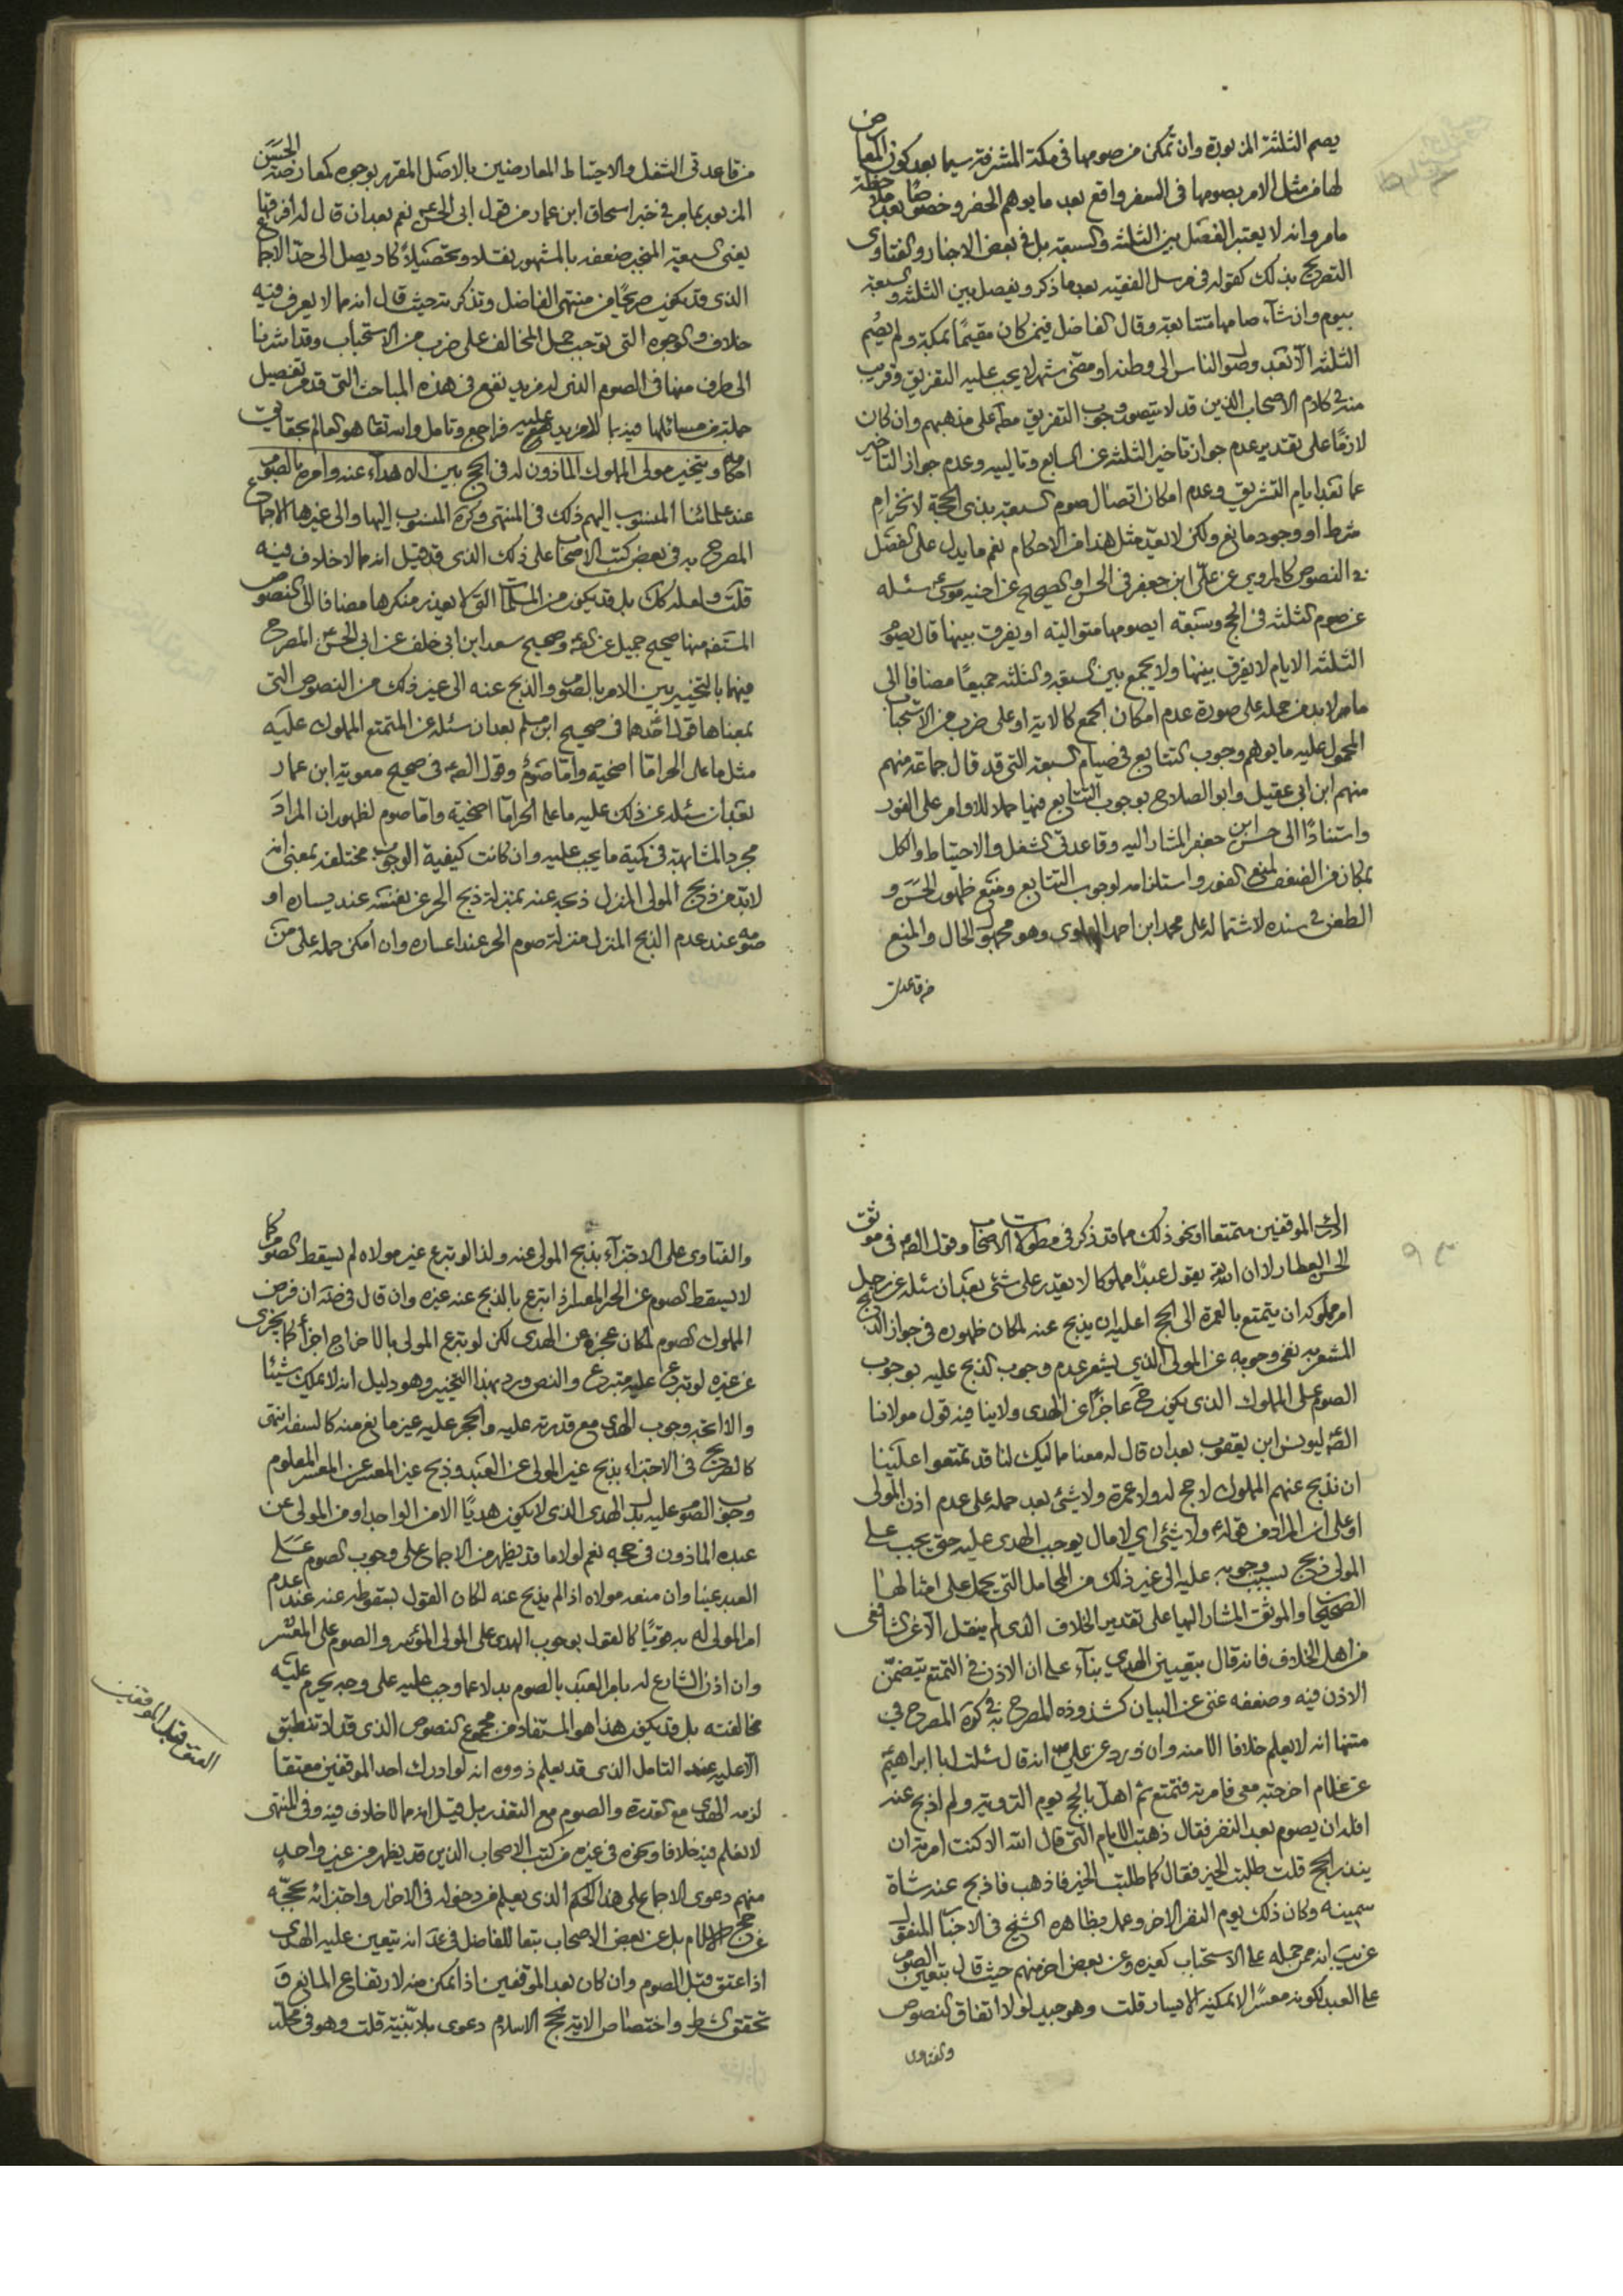 يصم الثلثة المزبورة وان تمكن من صومها فى مكة المشرفة سيما بعد كون المعارض
لها من مثل الامر بصومها فى السفر واقع بعد ما يوهم الحضر وخصوصا بعد ملاحظة
مامر وانه لا يعتبر الفصل بين الثلثة والسبعة بل فى بعض الاخبار والفتاوى
التصريح بذلك كقوله فى مرسل الفقيه بعد ما ذكر ويفصل بين الثلثة والسبعة
بيوم وان شآء صامها متتابعة وقال الفاضل فيمن كان مقيمًا بمكة ولم يصُم
الثلثة الا بعد وصول الناس الى وطنه او مضى شهر لا يجب عليه التفريق وقريب
منه فى كلام الاصحاب الذين قد لا يتصور وجوب التفريق مط على مذهبهم وان كان
لازمًا على تقدير عدم جواز تاخير الثلثة عن السابع وتالييه وعدم جواز التاخير
عما بعد ايام التشريق وعدم امكان اتصال صوم السبعة بذى الحجة لانخرام
شرط او وجود مانع ولكن لا يعد مثل هذا من الاحكام نعم ما يدل على الفصل
فى النصوص كالمروى عن على ابن جعفر فى الحسن او الصحيح عن اخيه موسى ع سئله
عن صوم الثلثة فى الحج وسبعة ايصومها متوالية او يفرق بينها قال يصوم
الثلثة الايام لا يفرق بينها ولا يجمع بين السبعة والثلثة جميعًا مضافا الى
مامر لابد من حمله على صورة عدم امكان الجمع كالاية او على ضرب من الاستحباب
المحمول عليه ما يوهم وجوب التتابع فى صيام السبعة التى قد قال جماعة منهم
منهم ابن ابى عقيل وابو الصلاح بوجوب التتابع فيها حملا للاوامر على الفور
واستنادًا الى حسن ابن جعفر المشار اليه وقاعدتى الشغل والاحتياط والكل
بمكان من الضعف لمنع الفور واستلزامه لوجوب التتابع ومنع ظهور الحسَن و
الطعن فى سنده لاشتماله على محمد ابن احمد العلوى وهو مجهول الحال والمنع
من قاعدتى
من قاعدتى الشغل والاحتياط المعارضين بالاصل المقرر بوجوه كمعارضة الحسَن
المزبور بما مر فى خبر اسحاق ابن عمار من قول ابى الحسن ع نعم بعد ان قال له افرقها
يعنى السبعة المنجبر ضعفه بالمشهور نقلا وتحصيلاً كاد يصل الى حد الاجماع
الذى قد يكون صريحًا من منتهى الفاضل وتذكرته حيث قال انه مما لا يعرف فيه
خلاف والوجوه التى توجب حمل المخالف على ضرب من الاستحباب وقد اشرنا
الى طرف منها فى الصوم الذى له مزيد نفع فى هذه المباحث التى قد مر تفصيل
جملة من مسائلها فيه بما لا مزيد عليه فراجع وتامل والله تعالى هو العالم بحقايق
احكامه ويتخير مولى المملوك الماذون له فى الحج بين الاهداء عنه وامره بالصوم
عند علمائنا المنسوب اليهم ذلك فى المنتهى وكرة المنسوب اليها والى غيرها الاجماع
المصرح به فى بعض كتب الاصحاب على ذلك الذى قد قيل انه مما لا خلاف فيه
قلت ولعله كك بل قد يكون من المسلمات التى لا يعذر منكرها مضافا الى النصوص
المستفيضة منها صحيح جميل عن الصم وصحيح سعد ابن ابى خلف عن ابى الحسن ع المصرح
فيهما بالتخيير بين الامر بالصوم والذبح عنه الى غير ذلك من النصوص التى
بمعناها قول احدهما فى صحيح ابن مسلم بعد ان سئله عن المتمتع المملوك عليه
مثل ما على الحر اما اضحية واما صَوْم وقول الصم فى صحيح معوية ابن عمار
بعد ان سئله عن ذلك عليه ما على الحر اما اضحية واما صوم لظهور ان المراد
مجرد المشابهة فى كمية ما يجب عليه وان كانت كيفية الوجوب مختلفة بمعنى انه
لابد من ذبح المولى المنزل ذبحه عنه بمنزلة ذبح الحر عن نفسه عند يساره او
صومه عند عدم الذبح المنزل منزلة صوم الحر عند اعساره وان امكن حمله على من
ادرك الموقفين متمتعا او نحو ذلك مما قد ذكر فى مطولات الاصحاب وقول الصم فى موثق
الحسن العطار لا ان الله يقول عبدًا مملوكا لا يقدر على شئ بعد ان سئله عن رجل
امر مملوكه ان يتمتع بالعمرة الى الحج اعليه ان يذبح عنه لمكان ظهوره فى جواز الذبح
المشعر به نفى وجوبه عن المولى الذى يشعر عدم وجوب الذبح عليه بوجوب
الصوم على المملوك الذى يكون ح عاجزًا عن الهدى ولا ينافيه قول مولانا
الصم ليونس ابن يعقوب بعد ان قال له معنا مماليك لنا قد تمتعوا علينا
ان نذبح عنهم المملوك لا حج له ولا عمرة ولا شئ بعد حمله على عدم اذن المولى
او على ان المراد من قوله ع ولا شئ اى لا مال يوجب الهدى عليه حتى يجب على
المولى ذبح بسبب وجوبه عليه الى غير ذلك من المحامل التى يحمل على امثالها
الصحيح والموثق المشار اليهما على تقدير الخلاف الذى لم ينقل الا عن الشافعى
من اهل الخلاف فانه قال بتعيين الهدى بنآء على ان الاذن فى التمتع يتضمن
الاذن فيه وضعفه غنى عن البيان كشذوذه المصرح به فى كرة المصرح فى
متنها انه لا يعلم خلافا الا منه وان ورد عن على انه قال سئلت ابا ابراهيم
عن غلام اخرجته معى فامرته فتمتع ثم اهل بالحج يوم التروية ولم اذبح عنه
افله ان يصوم بعد النفر فقال ذهبت الايام التى قال الله الا كنت امرته ان
يفرد الحج قلت طلبت الخير فقال كما طلبت الخير فاذهب فاذبح عنه شاة
سمينه وكان ذلك يوم النفر الاخر وعمل بظاهره الشيخ فى الاخبار المنقول
عن يب انه ممن حمله على الاستحباب كغيره وعن بعض اخر منهم حيث قال بتعين الصوم
على العبد لكونه معسرًا لا يمكنه الايسار قلت وهو جيد لولا اتفاق النصوص
والفتاوى
والفتاوى على الاجتزآء بذبح المولى عنه ولذا لو تبرع غير مولاه لم يسقط الصوم كما
لا يسقط الصوم عن الحر المعسر اذا تبرع بالذبح عنه غيره وان قال فى ضه ان فرض
المملوك الصوم لمكان عجزه عن الهدى لكن لو تبرع المولى بالاخراج اجزأ كما يجزى
عن غيره لو تبرع عليه متبرع والنص ورد بهذا التخيير وهو دليل انه لا يملك شيئا
والا اتجه وجوب الهدى مع قدرته عليه والحجر عليه غير مانع منه كالسفه انتهى
كالصريح فى الاجتزاء بذبح غير المولى عن العبد وذبح غير المعسر عن المعسر المعلوم
وجوب الصوم عليه بدل الهدى الذى لا يكون هديًا الا من الواجد او من المولى عن
عبده الماذون فى حجه نعم لولا ما قد يظهر من الاجماع على وجوب الصوم عَلَى
العبد عينا وان منعه مولاه اذا لم يذبح عنه لكان القول بسقوطه عنه عند عدم
امر المولى له به قويًا كالقول بوجوب الهدى على المولى المؤسر والصوم على المعسر
وان اذن الشارع له بامر العبد بالصوم بدلا عما وجب عليه على وجه يحرم عليه
مخالفته بل قد يكون هذا هو المستفاد من مجموع النصوص الذى قد لا تنطبق
الا عليه عند التامل الذى قد يعلم ذووه انه لو ادرك احد الموقفين معتقا
لزمه الهدى مع القدرة والصوم مع التعذر بل قيل انه مما لا خلاف فيه وفى المنتهى
لا نعلم فيه خلافا ونحوه فى غيره من كتب الاصحاب الذين قد يظهر من غير واحد
منهم دعوى الاجماع على هذا الحكم الذى يعلم من دخوله فى الاحرار واجتزائه بحجه
عن حج الاسلام بل عن بعض الاصحاب تبعا للفاضل فى عد انه يتعين عليه الهدى
اذا عتق قبل الصوم وان كان بعد الموقفين اذا تمكن منه لارتفاع المانع وَ
تحقق الشرط واختصاص الاية بحج الاسلام دعوى بلا بيّنة قلت وهو فى محله
العتق قبل الموقفين